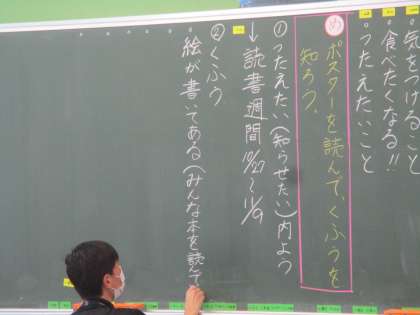 気をつけること
食べたくなる!!
つたえたいこと
め ポスターを読んで、くふうを
知ろう。
①つたえたい(知らせたい)内よう
↓読書週間 10/27~11/9
②くふう
絵が書いてある(みんな本を読んで